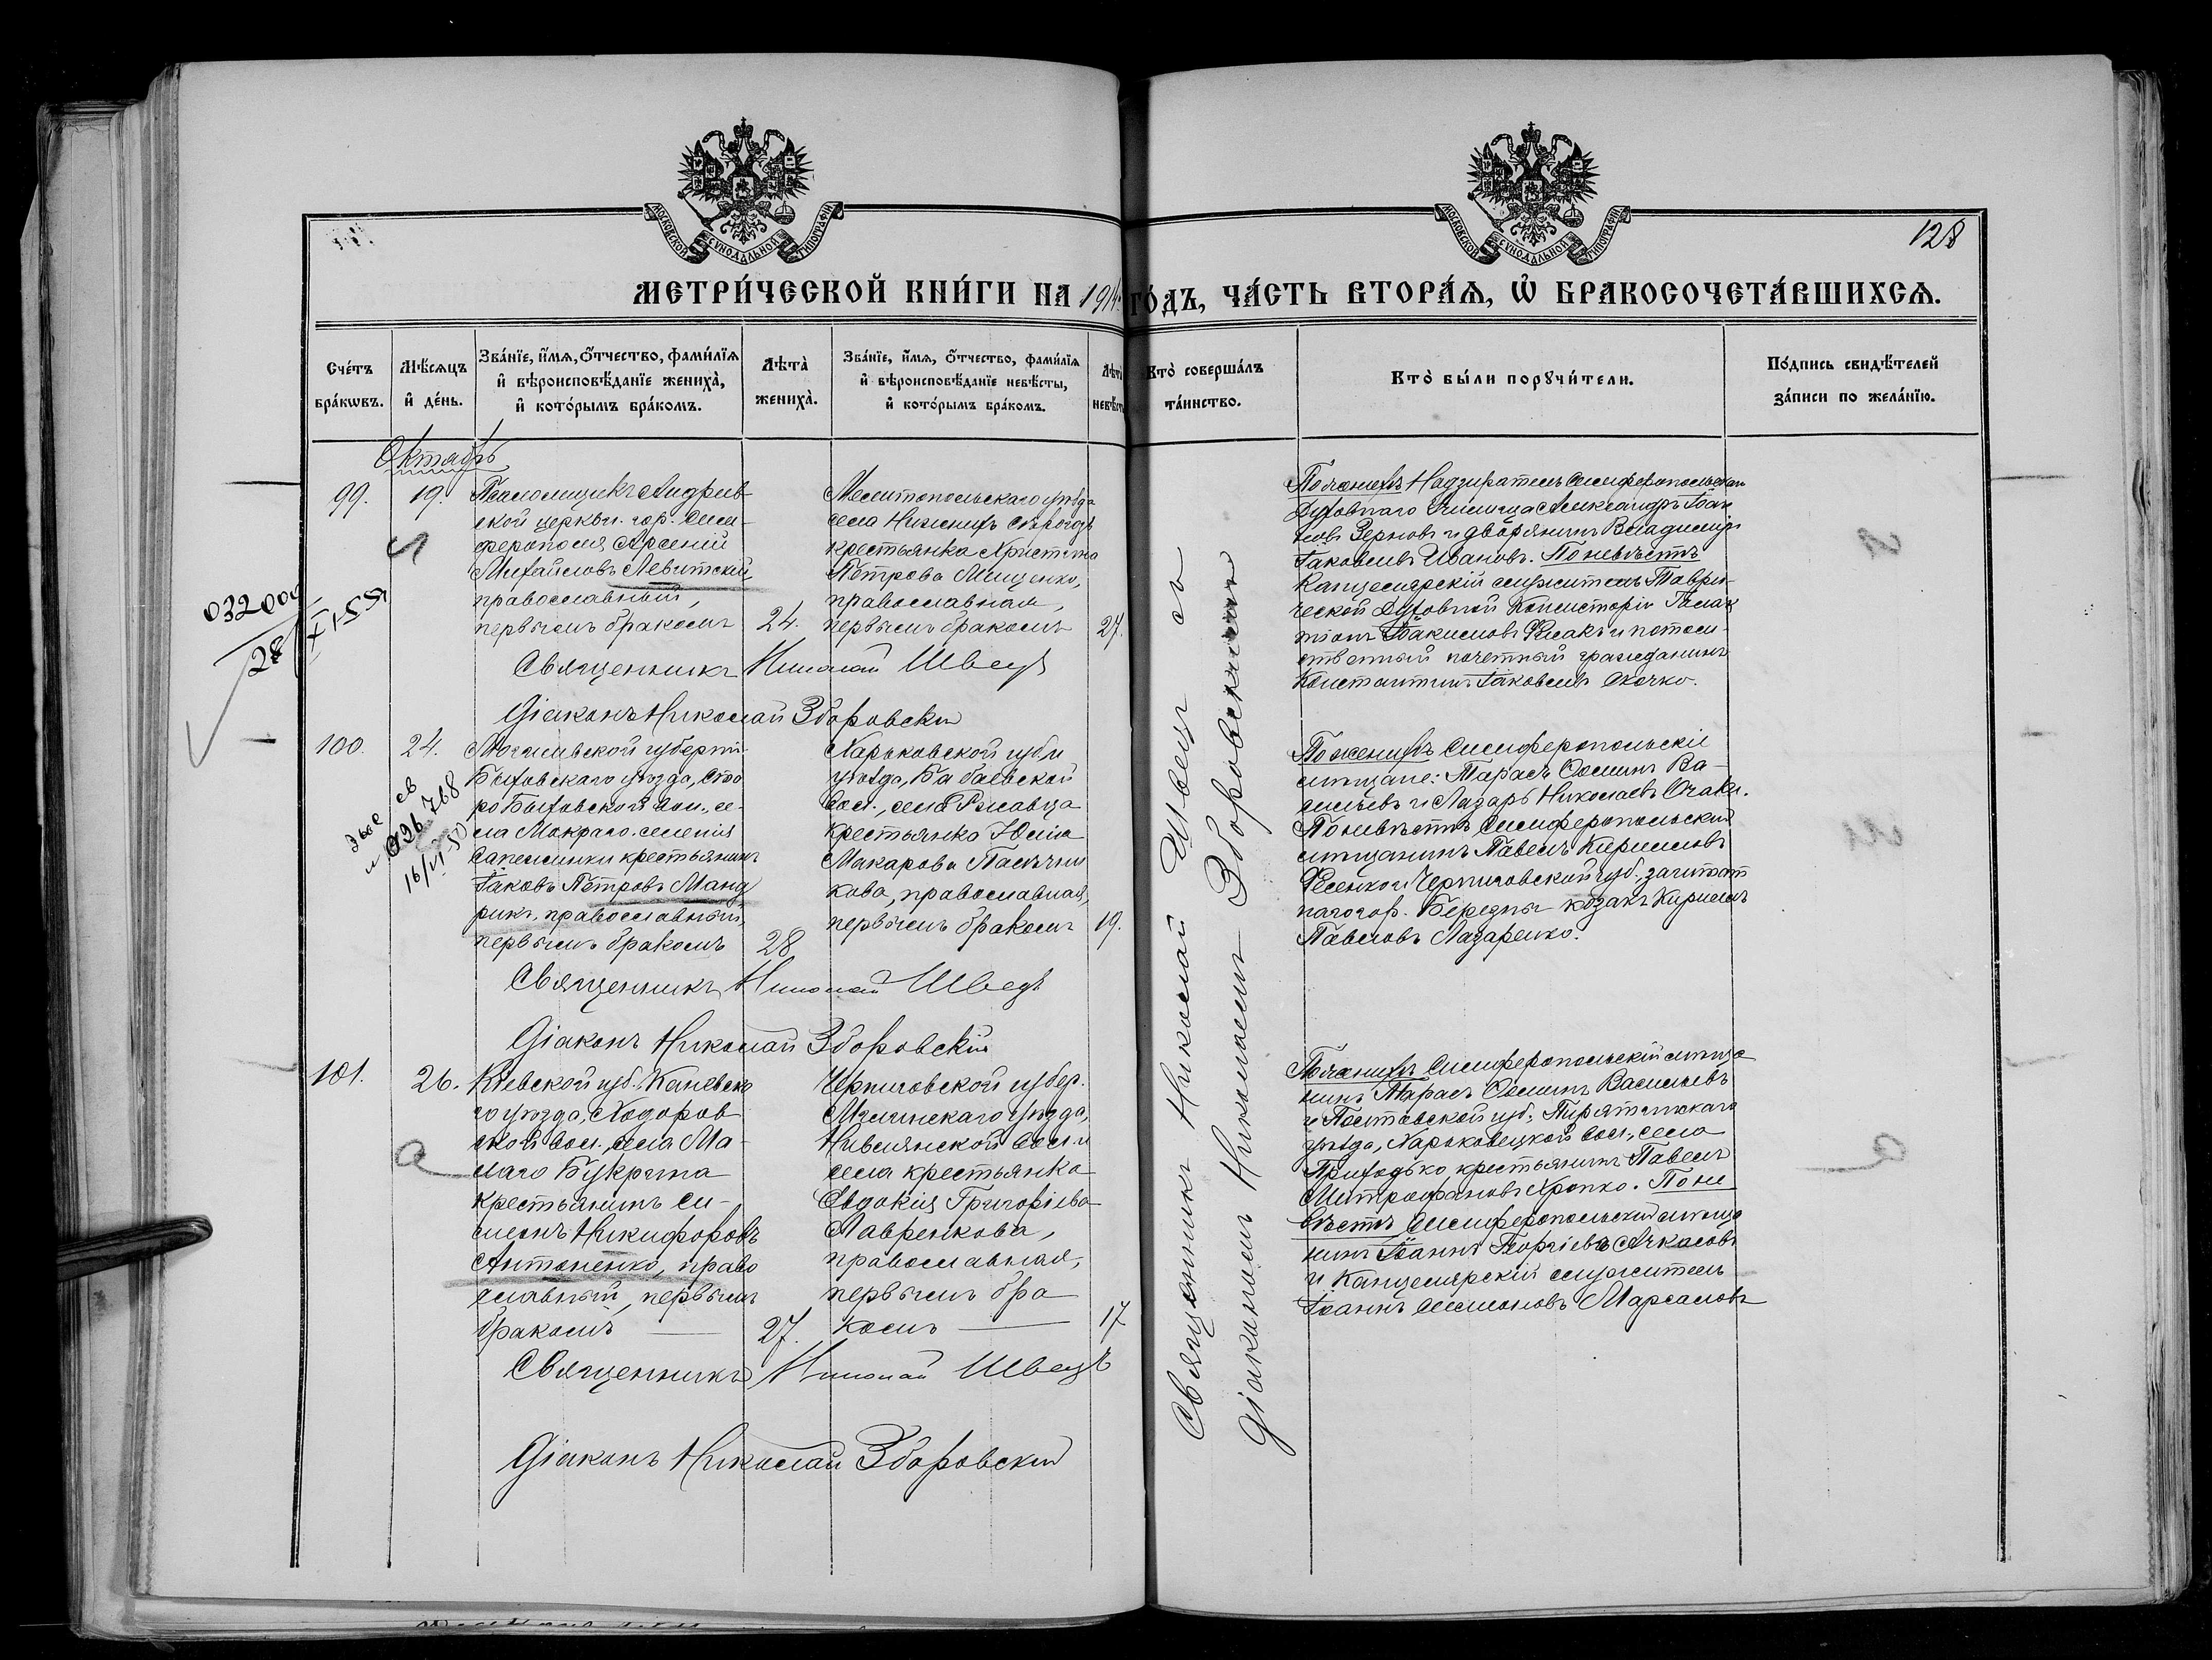 МОСКОВСКОЙ СУНОДАЛЬНОЙ ТИПОГРАФІИ
МОСКОВСКОЙ СУНОДАЛЬНОЙ ТИПОГРАФІИ
128
МЕТРИ́ЧЕСКОЙ КНИ́ГИ НА 1914 ГО́ДЪ, ЧА́СТЬ ВТОРА́Я, Ѡ БРАКОСОЧЕТА́ВШИХСЯ.
Сче́тъ бра́кѡвъ.
Мѣ́сяцъ и҆ де́нь.
Зва́нїе, и҆́мя, о҆́тчество, фами́лїя
и҆ вѣроисповѣ́данїе жениха̀,
и҆ кото́рымъ бра́комъ.
Лѣта̀ жениха̀.
Зва́нїе, и҆́мя, о҆́тчество, фами́лїя
и҆ вѣроисповѣ́данїе невѣ́сты,
и҆ кото́рымъ бра́комъ.
Лѣта̀ невѣ́сты
Кто̀ соверша́лъ
та́инство.
Кто̀ бы́ли порꙋчи́тели.
По́дпись свидѣ́телей
за́писи по жела́нїю.
Октябрь
99.
19.
Псаломщикъ Андреев-
ской церкви гор. Сим-
ферополя Арсеній
Михайловъ Левитскій,
православный,
первымъ бракомъ
24.
Мелитопольскаго уѣзда
села Нижнихъ Сѣрогозъ
крестьянка Христина
Петрова Мищенко,
православная,
первымъ бракомъ
27.
Священникъ Николай Швецъ
Діаконъ Николай Зборовскій
По женихѣ Надзиратель Симферопольскаго
Духовнаго Училища Александръ Іоан-
новъ Зерновъ и дворянинъ Владиміръ
Іаковлевъ Ивановъ. По невѣстѣ
Канцелярскій служитель Таври-
ческой Духовной Консисторіи
Іоакимовъ и потом-
ственный почетный гражданинъ
Константинъ Іаковлевъ Скочко.
032009
28/XI-55
100.
24.
Могилевской губерніи
Быховскаго уѣзда, Ста
ро Быховской вол., се-
ла Мокраго селенія
Сапежинки крестьянинъ
Іаковъ Петровъ Манд
рикъ, православный,
первымъ бракомъ
28
Харьковской губ. и
уѣзда, Бабаевской
вол., села Ржавца
крестьянка Юлія
Макарова Пасѣчни
кова, православная,
первымъ бракомъ
19.
Священникъ Николай Швецъ
Діаконъ Николай Зборовскій
св
026768
16/VI-50
По женихѣ Симферопольскіе
мѣщане: Тарасъ Ѳоминъ Ва-
сильевъ и Лазарь Николаевъ Очаки.
По невѣстѣ Симферопольскій
мѣщанинъ Павелъ Кирилловъ
Фесенко и Черниговской губ. заштат
наго гор. Березны козакъ Кириллъ
Павловъ Лазаренко.
101.
26.
Кіевской губ. Каневска
го уѣзда, Ходоров
ской вол., села Ма-
лаго Букрина
крестьянинъ Си-
меонъ Никифоровъ
Антоненко, право
славный, первымъ
бракомъ
27.
Черниговской губер.
Мглинскаго уѣзда,
Нивлянской вол. и
села крестьянка
Евдокія Григоріева
Лавренкова,
православная,
первымъ бра
комъ
17
Священникъ Николай Швецъ
Діаконъ Николай Зборовскій
По женихѣ Симферопольскій мѣща
нинъ Тарасъ Ѳоминъ Васильевъ
и Полтавской губ. Пирятинскаго
уѣзда, Харьковецкой вол., села
Приходько крестьянинъ Павелъ
Митрофановъ Хропко. По не
вѣстѣ Симферопольскій мѣща
нинъ Іоаннъ Георгіевъ Ачкасовъ
и Канцелярскій служитель
Іоаннъ Симоновъ Марсаловъ
Священникъ Николай Швецъ съ
Діакономъ Николаемъ Зборовскимъ